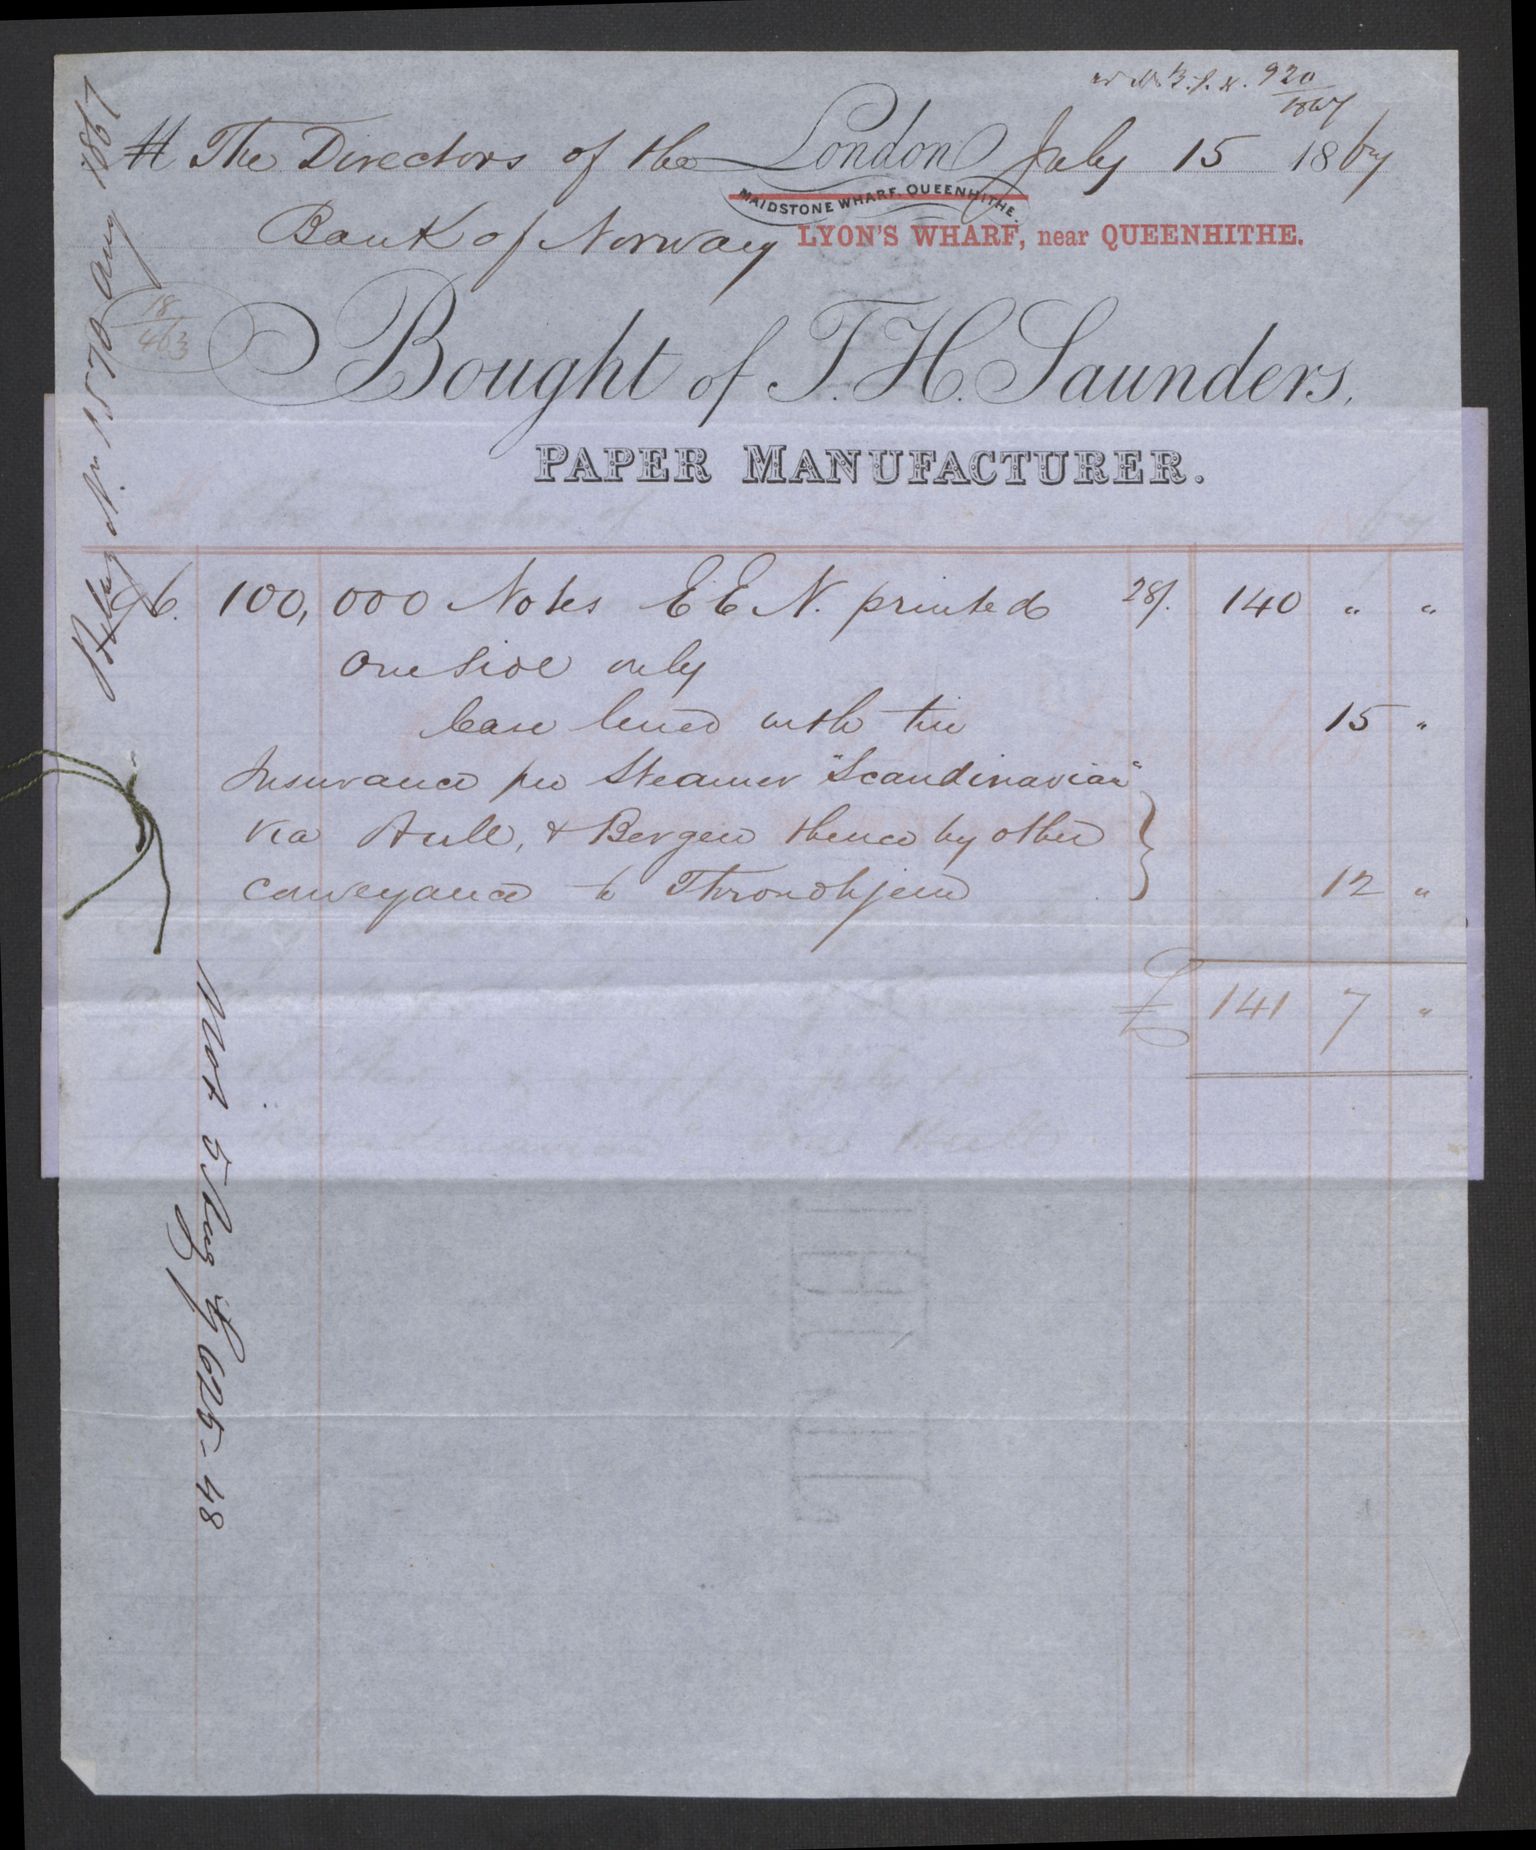 920
1867
The Directors of the London July 15 1867
MAIDSTONE WHARF, QUEENHITHE.
Bank of Norway LYON'S WHARF, near QUEENHITHE.
18
463
Bought of T. H. Saunders,
PAPER MANUFACTURER.
100,000 Notes E E N. printed 28/. 140 " "
One Side only
Case lined with tin 15 "
Insurance per Steamer "Scandinavian"
Via Hull, & Bergen thence by other
conveyance to Throndhjem 12 "
£ 141 7 "
Bilag N. 1570 Aug 1867
Mot 5 Aug 625-48